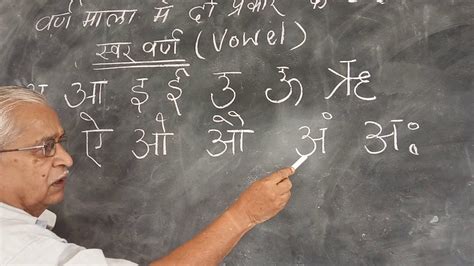 वर्ण माला में दो प्रकार के
स्वर वर्ण (Vowel)
आ इ ई उ ऊ ऋ
ऐ ओ औ अं अः